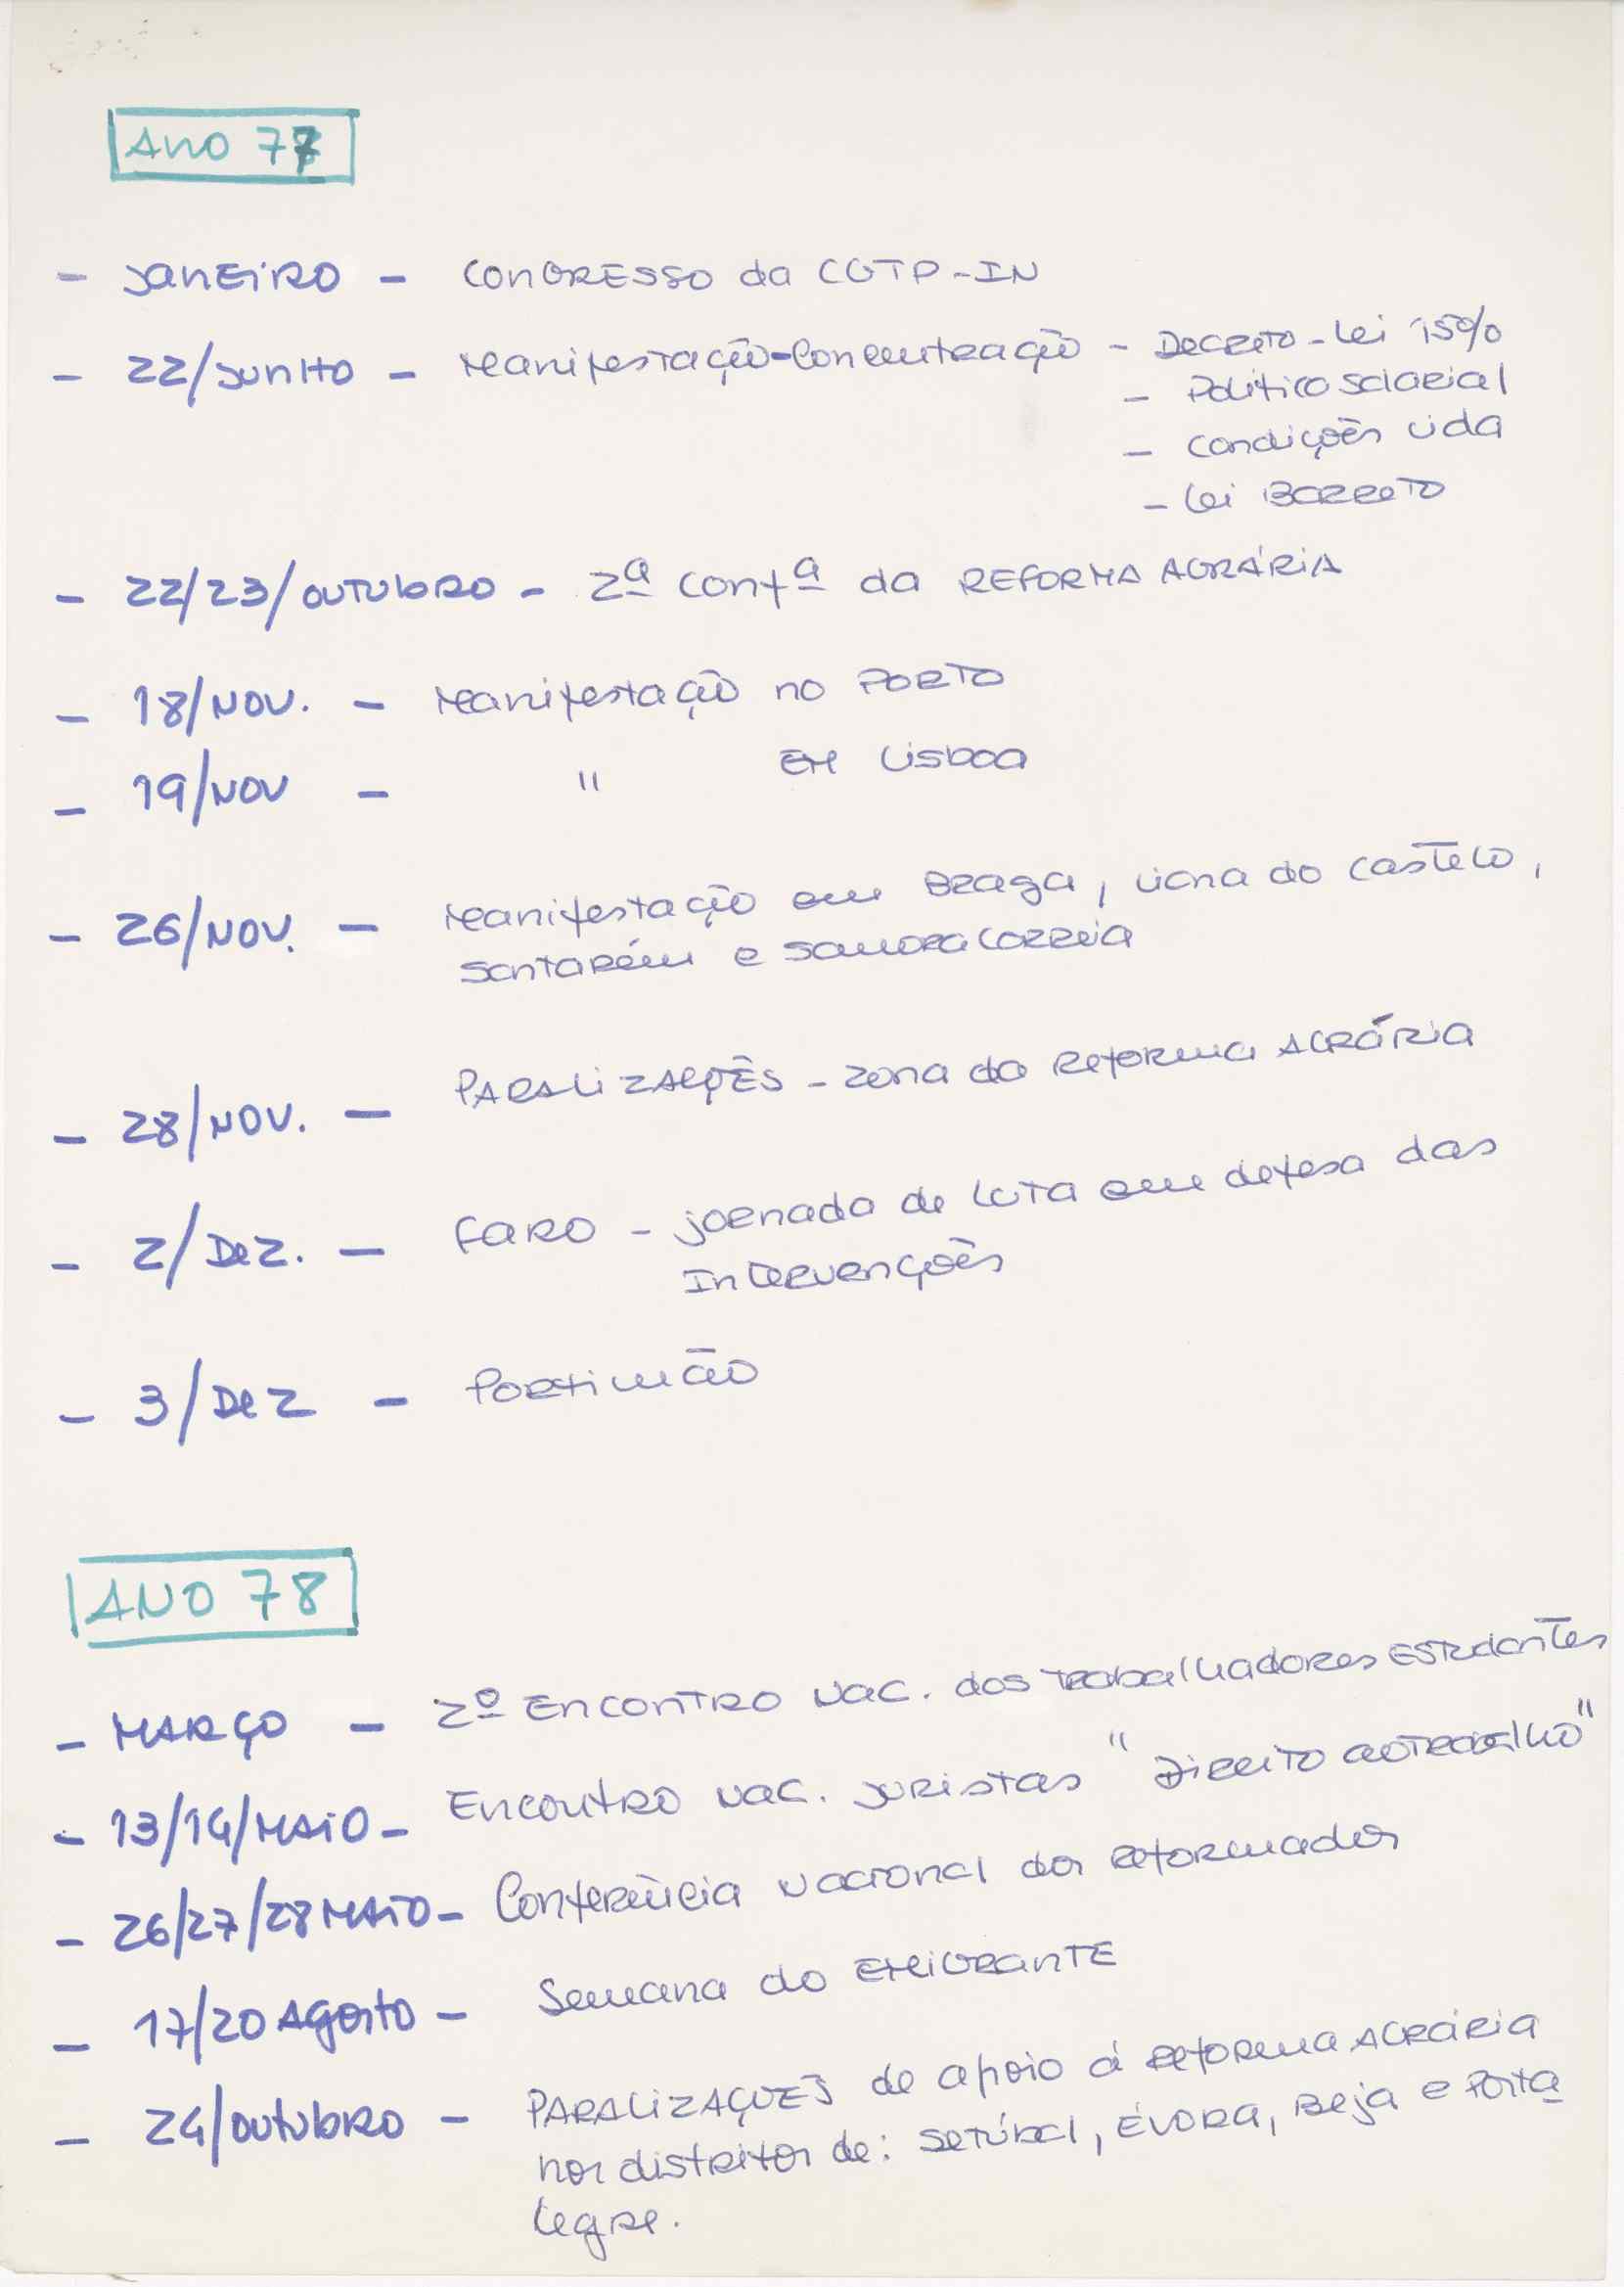 ANO 77
- JANEIRO - CONGRESSO da CGTP-IN
- 22/JUNHO - Manifestação-Concentração - Decreto-Lei 15%
- Politica Salarial
- Condições vida
- Lei Barreto
- 22/23/OUTUBRO - 2ª Confª da REFORMA AGRÁRIA
- 18/NOV. - Manifestação no PORTO
- 19/NOV - " EM Lisboa
- 26/NOV. - Manifestação em Braga, Viana do Castelo,
Santarém e Samora Correia
- 28/NOV. - PARALIZAÇÕES - zona da Reforma AGRÁRIA
- 2/DEZ. - FARO - jornada de Luta em defesa das
Intervenções
- 3/DEZ - Portimão
ANO 78
- MARÇO - 2º ENCONTRO Nac. dos Trabalhadores Estudantes
- 13/14/MAIO - Encontro Nac. Juristas "Direito ao Trabalho"
- 26/27/28 MAIO - Conferência Nacional dos Reformados
- 17/20 AGOSTO - Semana do EMIGRANTE
- 24/OUTUBRO - PARALIZAÇÕES de apoio á Reforma AGRÁRIA
nos distritos de: Setúbal, ÉVORA, Beja e Porta
legre.